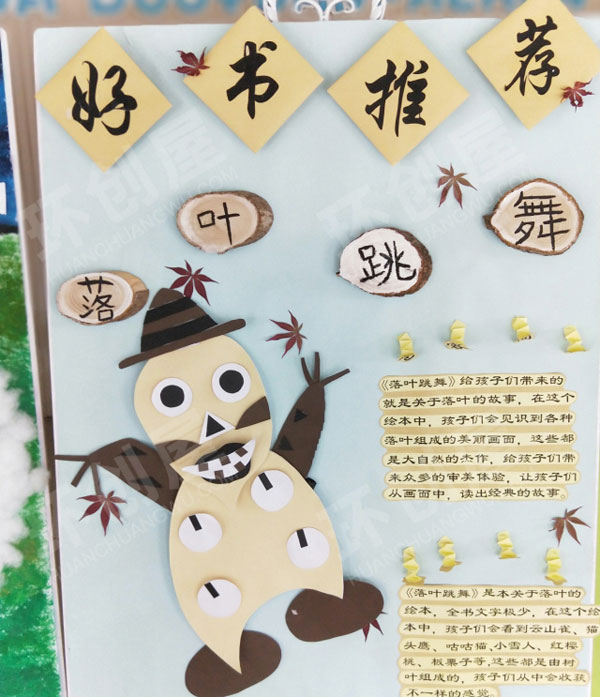 好书推荐
落叶跳舞
《落叶跳舞》给孩子们带来的
就是关于落叶的故事，在这个
绘本中，孩子们会见识到各种
落叶组成的美丽画面，这些都
是大自然的杰作，给孩子们带
来众多的审美体验，让孩子们
从画面中，读出经典的故事。
《落叶跳舞》是本关于落叶的
绘本，全书文字极少，在这个绘
本中，孩子们会看到云山雀、猫
头鹰、咕咕猫，小雪人、红樱
桃、板栗子等，这些都是由树
叶组成的，孩子们从中会收获
不一样的感受
环创屋
HUANCHUANGWU.COM